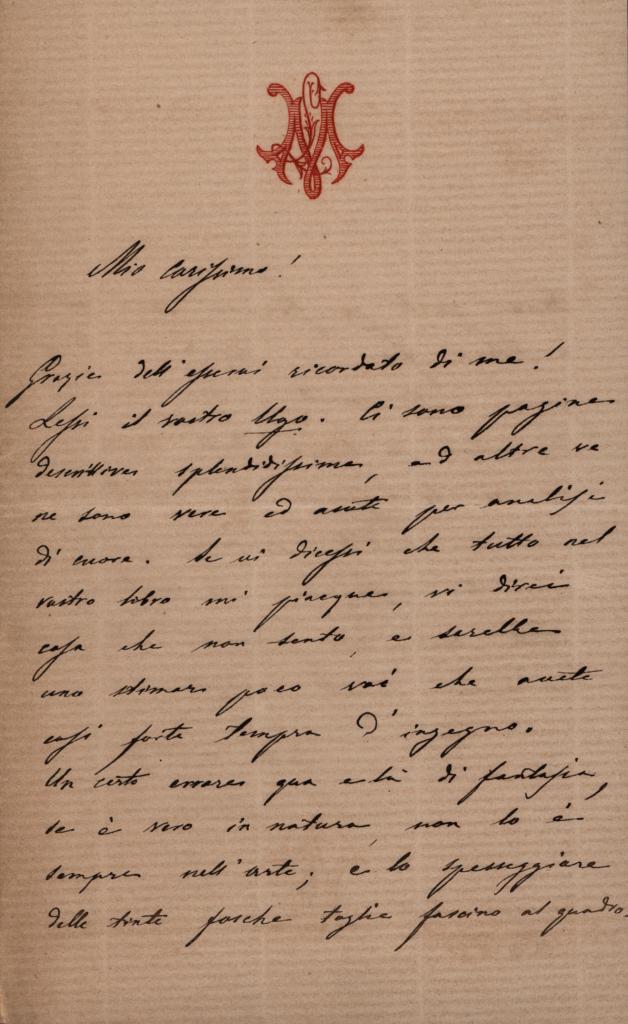 Mio carissimo!
Grazie dell'esservi ricordato di me!
Lessi il vostro Ugo. Ci sono pagine
descrittive splendidissime, ed altre ve
ne sono vere ed acute per analisi
di cuore. Se vi dicessi che tutto nel
vostro libro mi piacque, vi direi
cosa che non sento, e sarebbe
uno stimar poco voi che avete
così forte tempra d'ingegno.
Un certo errare qua e là di fantasia,
se è vero in natura, non lo è
sempre nell'arte; e lo spesseggiare
delle tinte fosche toglie fascino al quadro.